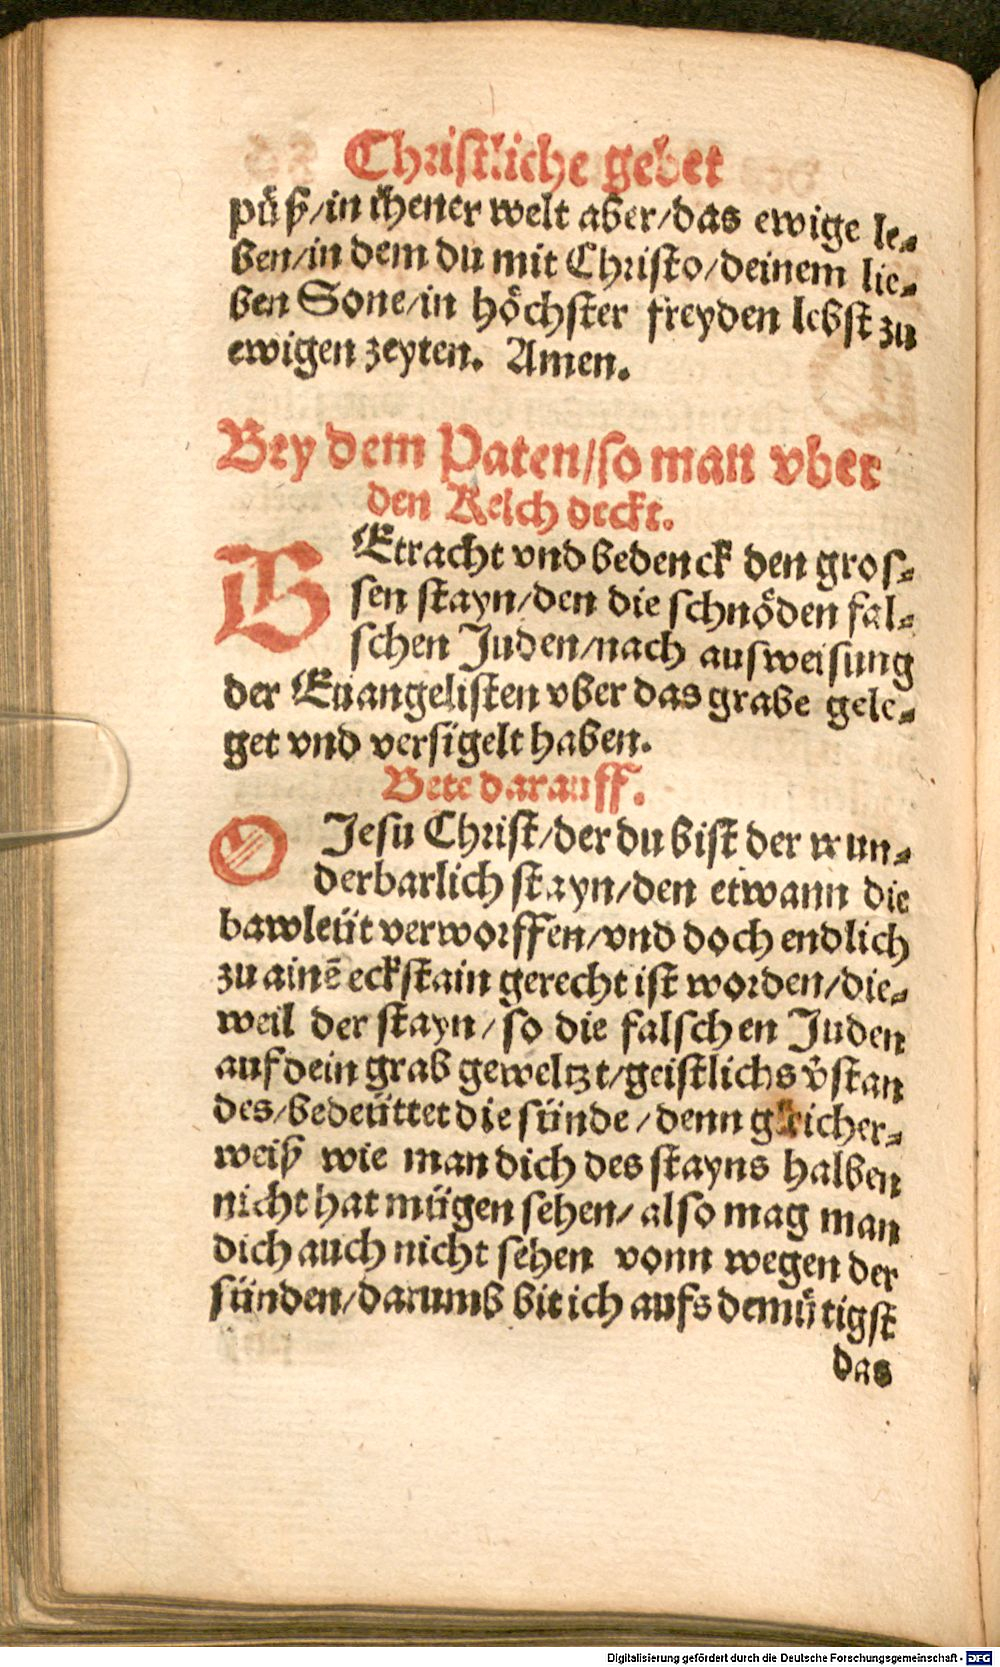 Christliche gebet
půß/in ihener welt aber/das ewige le⸗
ben/in dem du mit Christo/deinem lie⸗
ben Sone/in höchster freyden lebst zu
ewigen zeyten. Amen.
Bey dem Paten/so man vber
den Kelch deckt.
BEtracht vnd bedenck den gros⸗
sen stayn/den die schnöden fal⸗
schen Juden/nach ausweisung
der Euangelisten vber das grabe gele⸗
get vnd versigelt haben.
Bete darauff.
O Jesu Christ/der du bist der wun⸗
derbarlich stayn/den etwann die
bawleüt verworffen/vnd doch endlich
zu ainē eckstain gerecht ist worden/die⸗
weil der stayn/so die falschen Juden
auf dein grab geweltzt/geistlichs v̄stan
des/bedeüttet die sünde/denn gleicher⸗
weiß wie man dich des stayns halben
nicht hat mügen sehen/also mag man
dich auch nicht sehen vonn wegen der
sünden/darumb bit ich aufs demůtigst
das
Digitalisierung gefördert durch die Deutsche Forschungsgemeinschaft - DFG